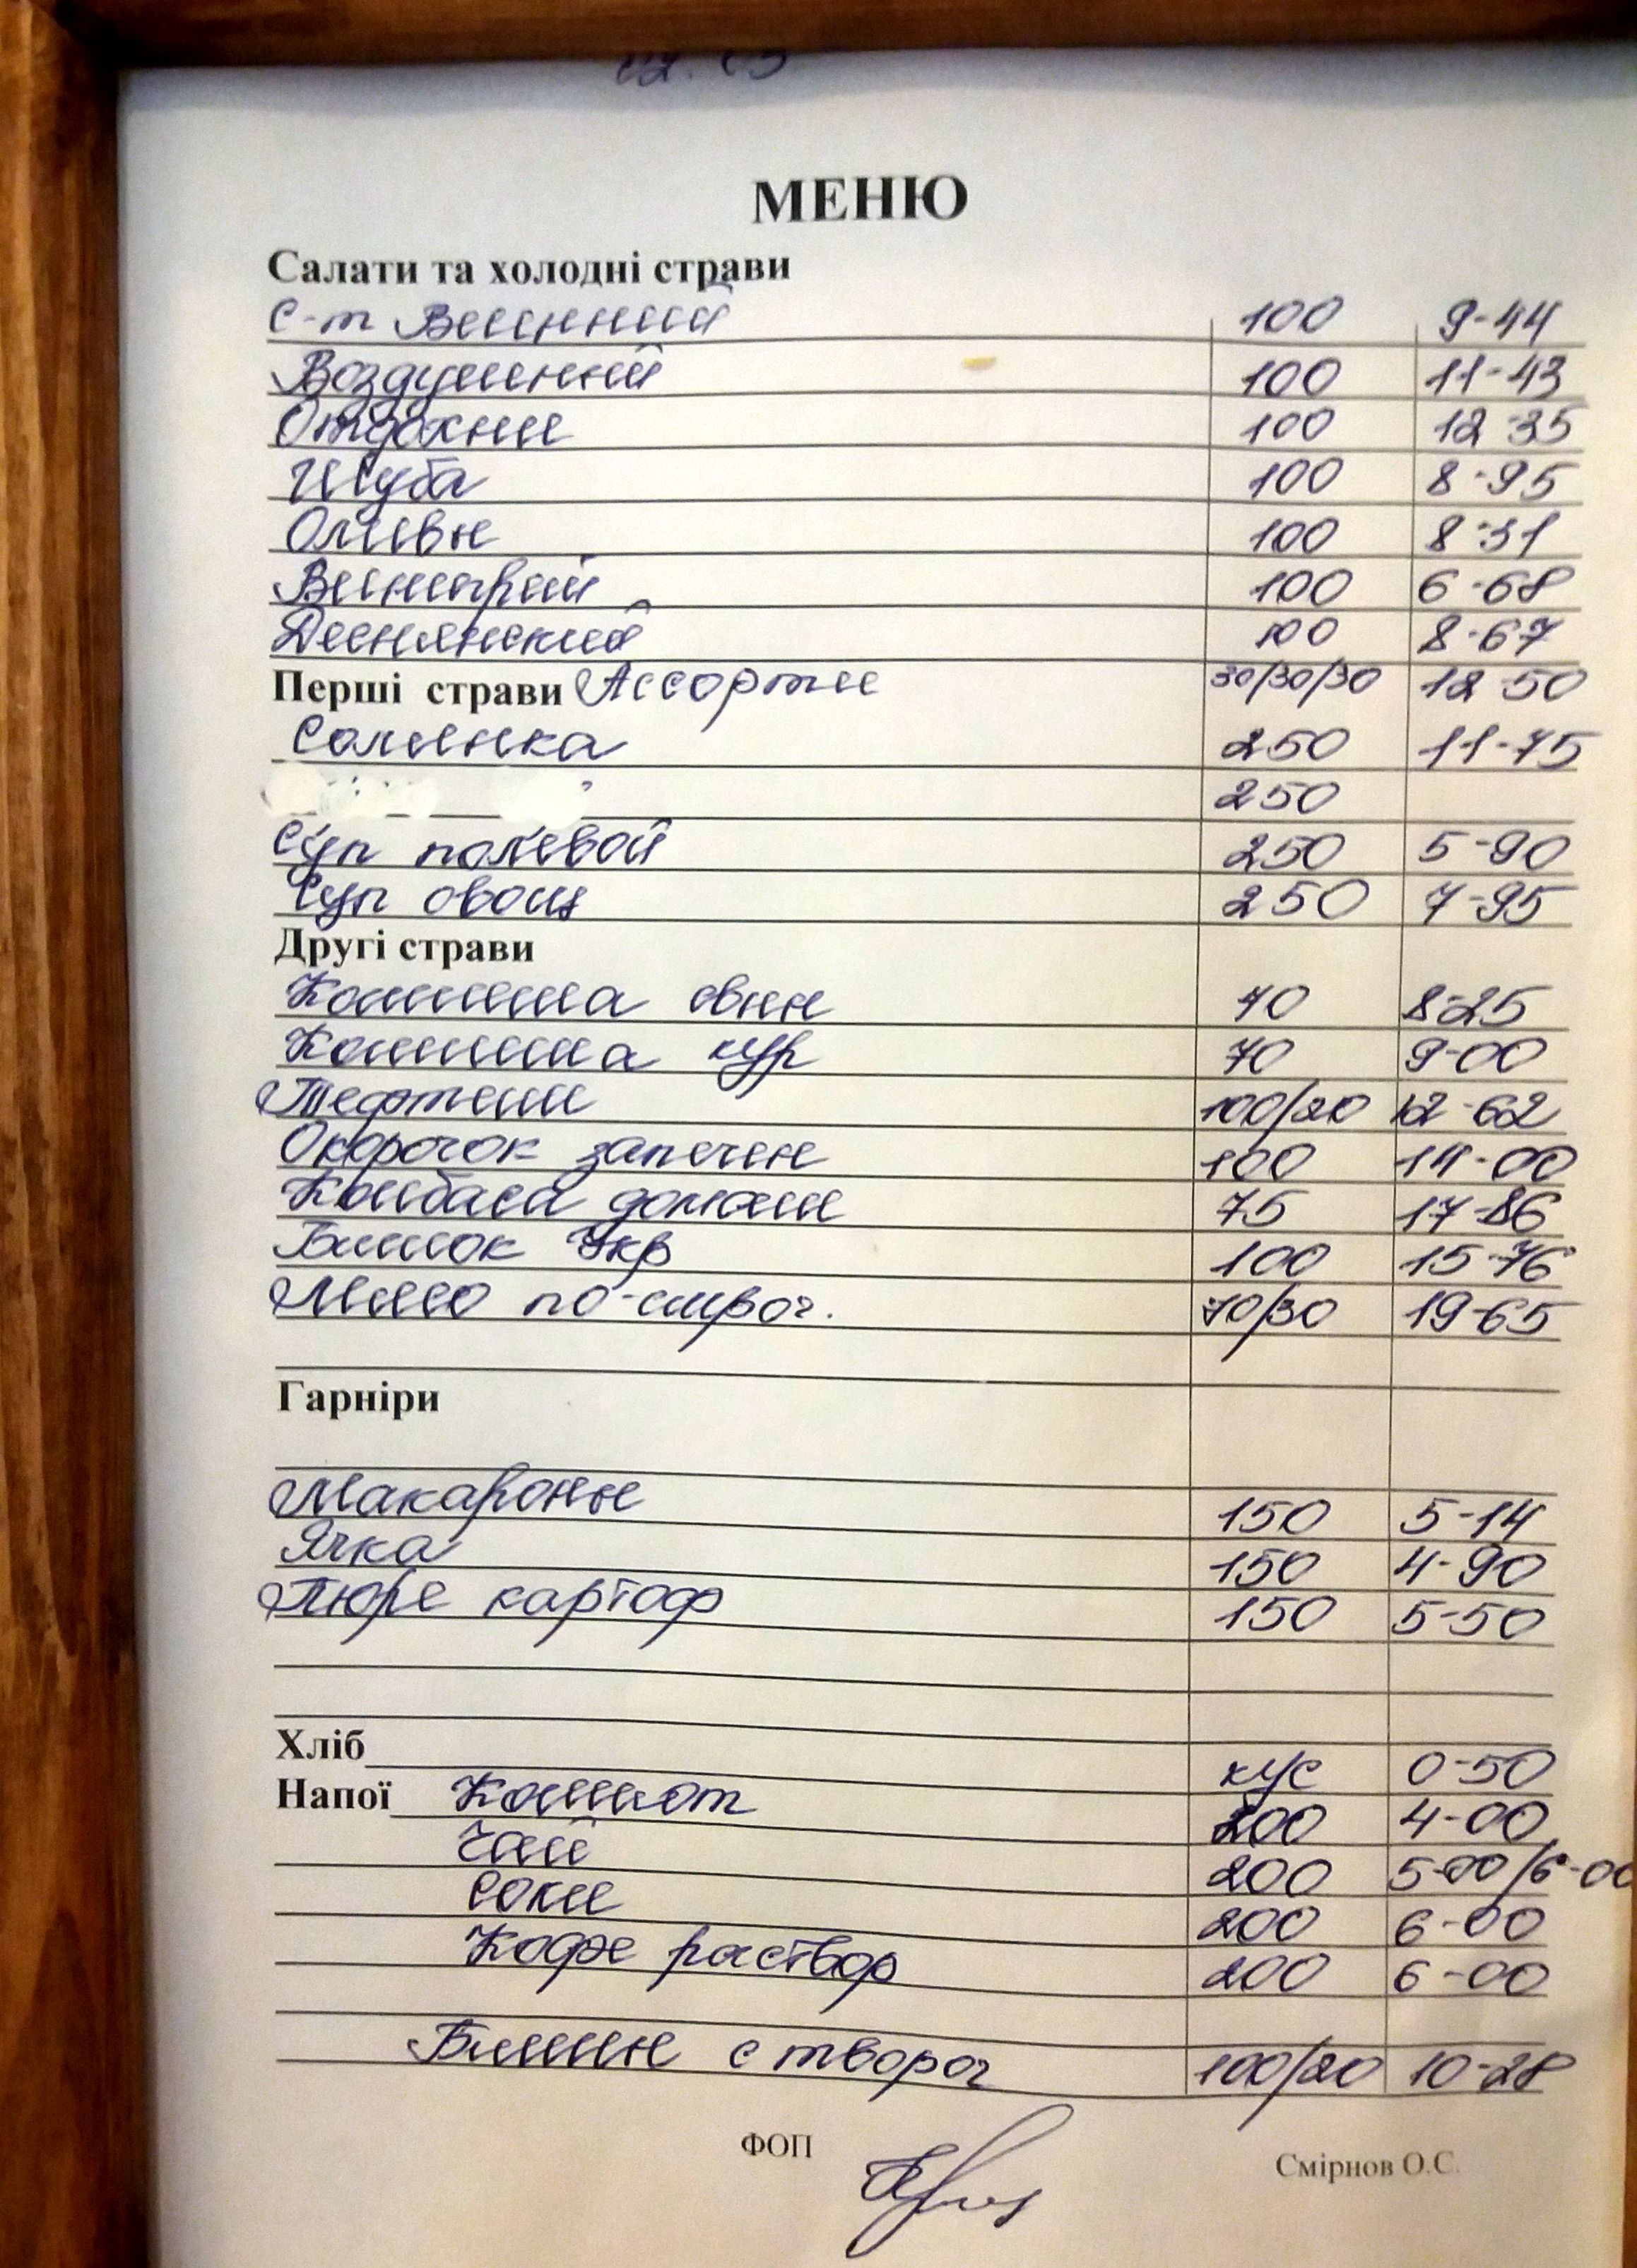 МЕНЮ
Салати та холодні страви
С-т Весенний 100 9-44
Воздушный 100 11-43
Отдохни 100 12-35
Шуба 100 8-95
Оливье 100 8-31
100 6-68
Деснянский 100 8-67
Перші страви Ассорти 30/30/30 12-50
Солянка 250 11-75
250
Суп полевой 250 5-90
Суп овощ 250 7-95
Другі страви
Котлета свин 70 8-25
Котлета кур 70 9-00
Тефтели 100/20 12-62
Окорочок запечен 100 14-00
Колбаса домаш 75 17-86
Биток Укр 100 15-76
Мясо по-строг. 70/30 19-65
Гарніри
Макароны 150 5-14
Ячка 150 4-90
Пюре картоф 150 5-50
Хліб кус 0-50
Напої Компот 200 4-00
Чай 200 5-00/6-00
Соки 200 6-00
Кофе раствор 200 6-00
Блины с творог 100/20 10-28
ФОП Смірнов О.С.